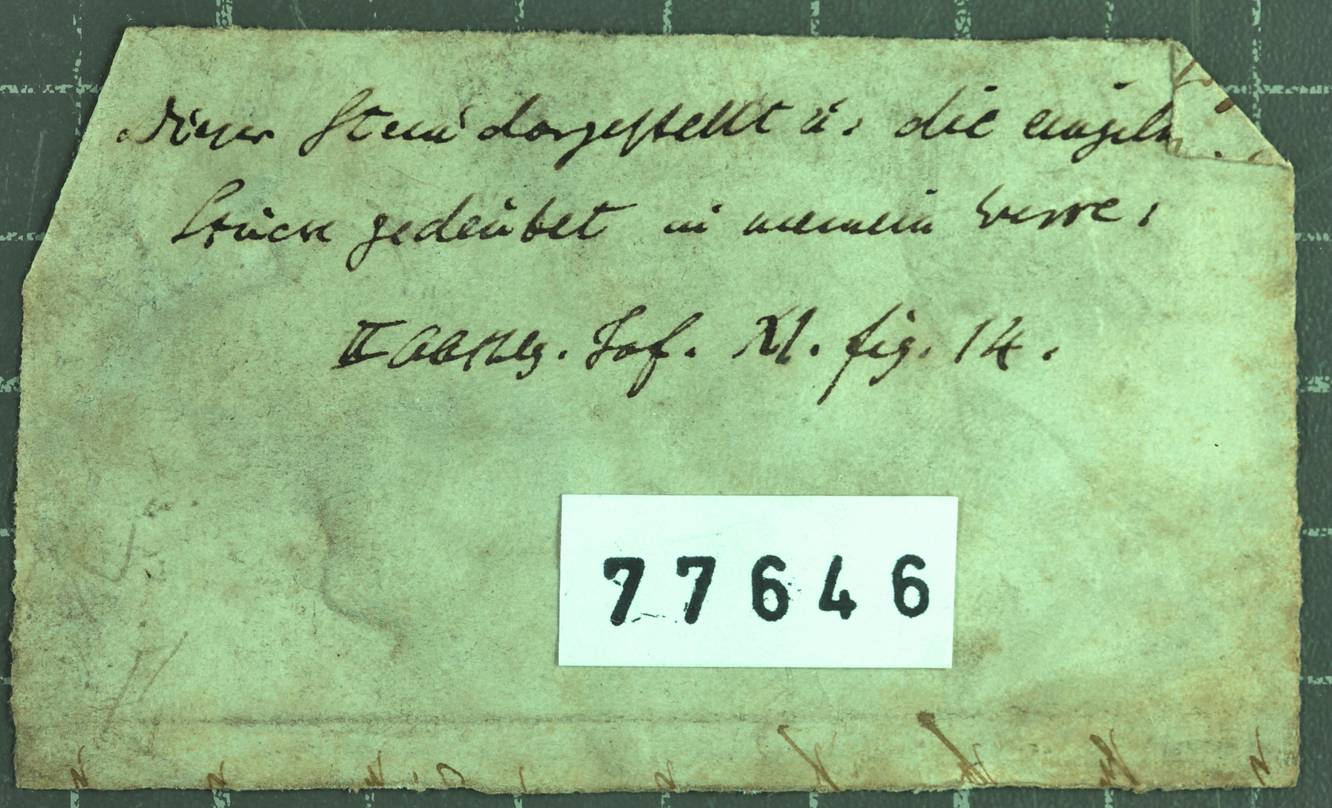 Dieser Stein dargestellt u. die einzeln
Stücke gedeutet in meinem Werke:
II Abthlg. Taf. XI. fig. 14.
77646